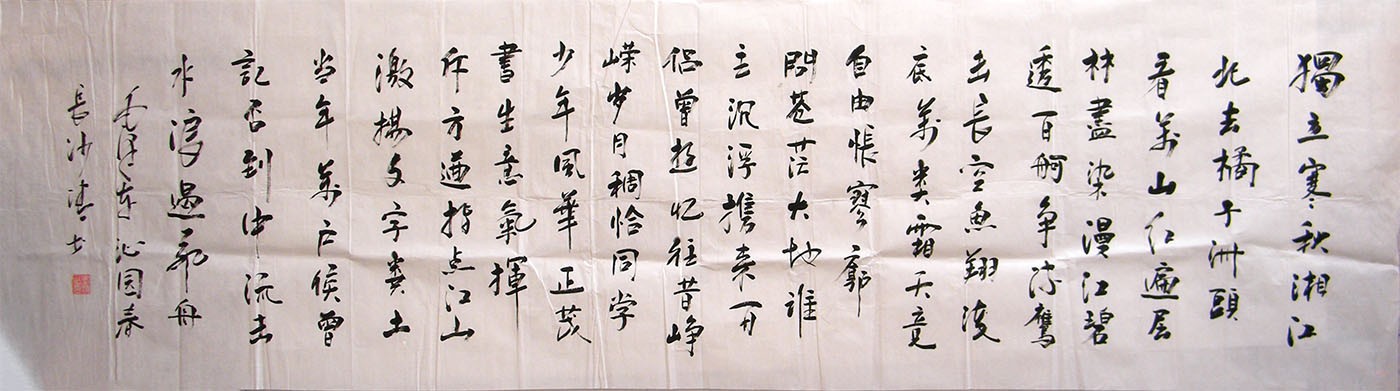 獨立寒秋湘江
北去橘子洲頭
看萬山红遍层
林盡染漫江碧
透百舸争流鹰
击長空魚翔浅
底萬类霜天竟
自由悵寥廓
問苍茫大地誰
主沉浮攜来百
侣曾遊忆往昔峥
嵘岁月稠恰同学
少年風華正茂
書生意氣揮
斥方遒指点江山
激揚文字粪土
当年萬户侯曾
記否到中流击
水浪遏飛舟
毛泽东沁园春
長沙书